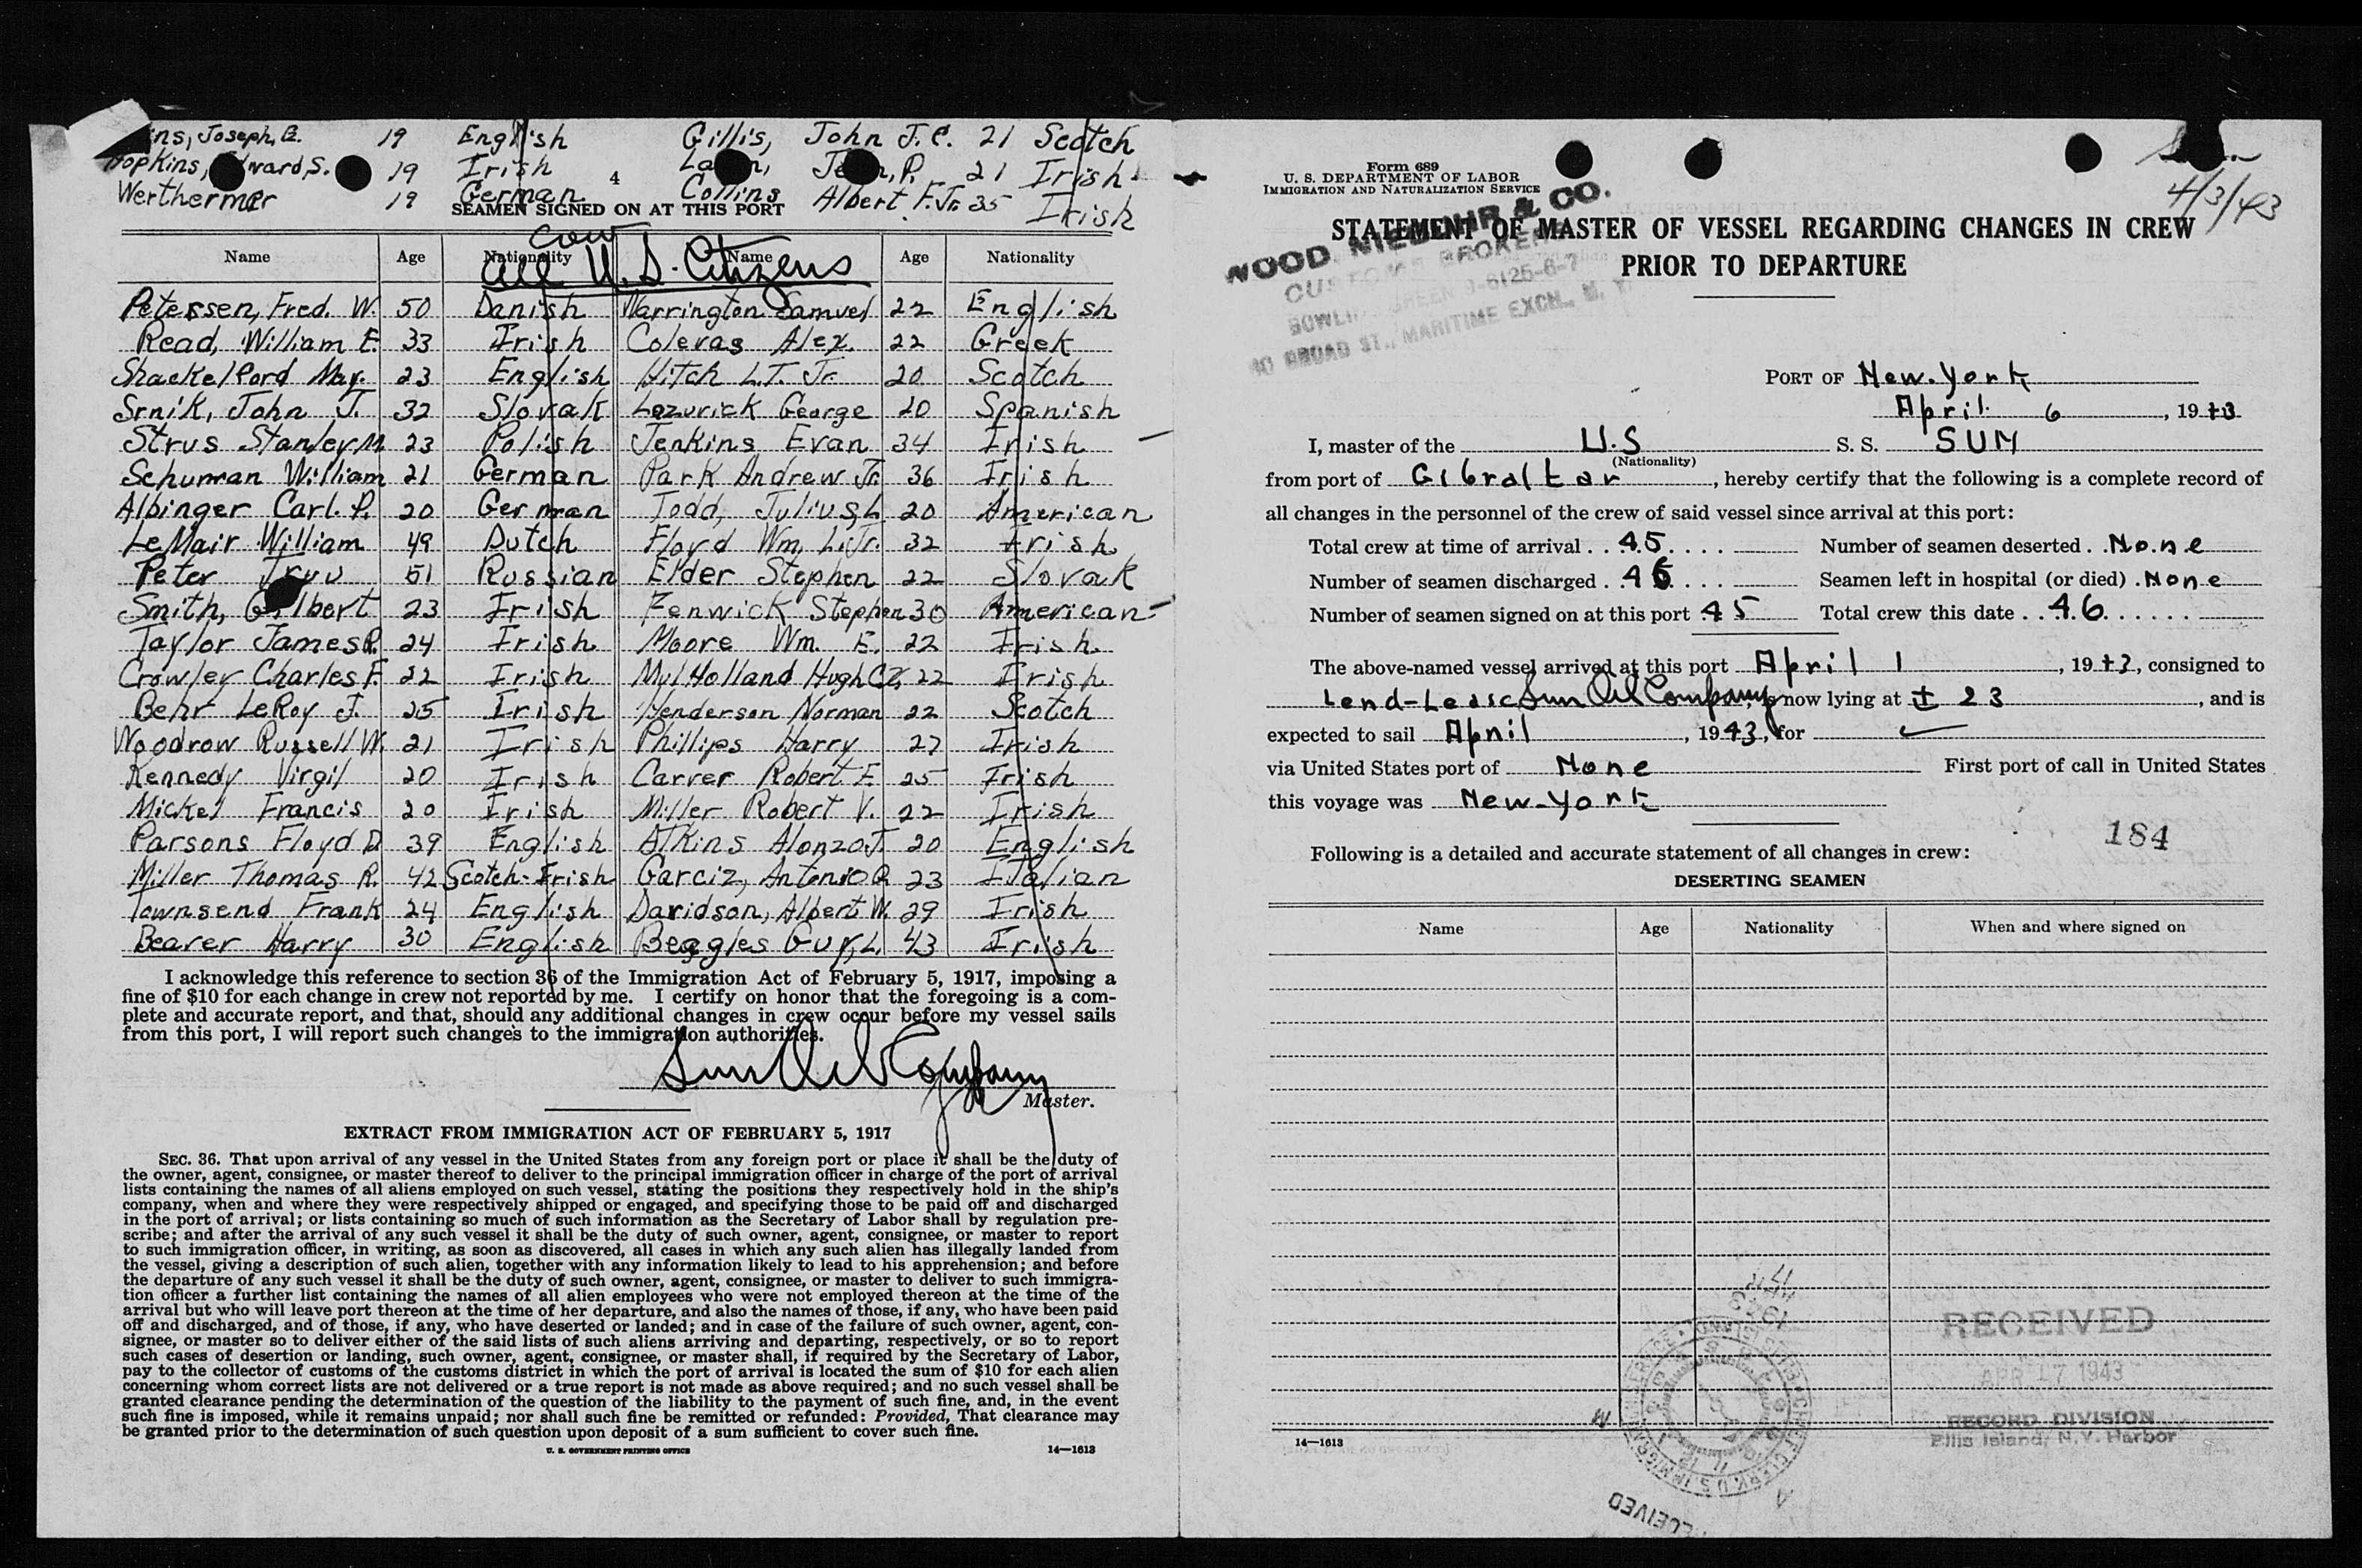 Joseph, E. 19 English Gillis, John J. C. 21 Scotch
Hopkins, S. 19 Irish P. 21 Irish
19 German Collins Albert F. Jr. 35 Irish
4
SEAMEN SIGNED ON AT THIS PORT
Name Age Nationality Name Age Nationality
all U.S. Citizens
Petersen, Fred. W. 50 Danish Warrington Samuel 22 English
Read, William E. 33 Irish Colevas Alex. 22 Greek
Shackelford May. 23 English Hitch L.T. Jr. 20 Scotch
Srnik, John J. 32 Slovak Lozurick George 20 Spanish
Strus Stanley M. 23 Polish Jenkins Evan 34 Irish
Schuman William 21 German Park Andrew Jr. 36 Irish
Albinger Carl. P. 20 German Todd, Julius L 20 American
LeMair William 49 Dutch Floyd Wm. L. Jr. 32 Irish
Peter 51 Russian Elder Stephen 22 Slovak
Smith, Gilbert 23 Irish Fenwick Stephen 30 American
Taylor James R. 24 Irish Moore Wm. E. 22 Irish
Crowley Charles F. 22 Irish Mulholland Hugh 22 Irish
Behr LeRoy J. 25 Irish Henderson Norman 22 Scotch
Woodrow Russell W. 21 Irish Phillips Harry 27 Irish
Kennedy Virgil 20 Irish Carver Robert E. 25 Irish
Mickel Francis 20 Irish Miller Robert V. 22 Irish
Parsons Floyd D 39 English Atkins Alonzo J. 20 English
Miller Thomas R. 42 Scotch-Irish Garciz, Antonio R 23 Italian
Townsend Frank 24 English Davidson, Albert W. 29 Irish
Beaver Harry 30 English Beagles Guy, L. 43 Irish
I acknowledge this reference to section 36 of the Immigration Act of February 5, 1917, imposing a
fine of $10 for each change in crew not reported by me. I certify on honor that the foregoing is a com-
plete and accurate report, and that, should any additional changes in crew occur before my vessel sails
from this port, I will report such changes to the immigration authorities.
Sun Oil Company
Master.
EXTRACT FROM IMMIGRATION ACT OF FEBRUARY 5, 1917
SEC. 36. That upon arrival of any vessel in the United States from any foreign port or place it shall be the duty of
the owner, agent, consignee, or master thereof to deliver to the principal immigration officer in charge of the port of arrival
lists containing the names of all aliens employed on such vessel, stating the positions they respectively hold in the ship's
company, when and where they were respectively shipped or engaged, and specifying those to be paid off and discharged
in the port of arrival; or lists containing so much of such information as the Secretary of Labor shall by regulation pre-
scribe; and after the arrival of any such vessel it shall be the duty of such owner, agent, consignee, or master to report
to such immigration officer, in writing, as soon as discovered, all cases in which any such alien has illegally landed from
the vessel, giving a description of such alien, together with any information likely to lead to his apprehension; and before
the departure of any such vessel it shall be the duty of such owner, agent, consignee, or master to deliver to such immigra-
tion officer a further list containing the names of all alien employees who were not employed thereon at the time of the
arrival but who will leave port thereon at the time of her departure, and also the names of those, if any, who have been paid
off and discharged, and of those, if any, who have deserted or landed; and in case of the failure of such owner, agent, con-
signee, or master so to deliver either of the said lists of such aliens arriving and departing, respectively, or so to report
such cases of desertion or landing, such owner, agent, consignee, or master shall, if required by the Secretary of Labor,
pay to the collector of customs of the customs district in which the port of arrival is located the sum of $10 for each alien
concerning whom correct lists are not delivered or a true report is not made as above required; and no such vessel shall be
granted clearance pending the determination of the question of the liability to the payment of such fine, and, in the event
such fine is imposed, while it remains unpaid; nor shall such fine be remitted or refunded: Provided, That clearance may
be granted prior to the determination of such question upon deposit of a sum sufficient to cover such fine.
U. S. GOVERNMENT PRINTING OFFICE 14—1613
Form 689
U. S. DEPARTMENT OF LABOR
IMMIGRATION AND NATURALIZATION SERVICE
4/3/43
STATEMENT OF MASTER OF VESSEL REGARDING CHANGES IN CREW
PRIOR TO DEPARTURE
WOOD NIEBUHR & CO.
CUSTOMS BROKERS
BOWLING GREEN 9-6125-6-7
BROAD ST., MARITIME EXCH., N. Y.
PORT OF New-York
April 6, 1943
I, master of the U.S S. S. SUN
(Nationality)
from port of Gibraltar, hereby certify that the following is a complete record of
all changes in the personnel of the crew of said vessel since arrival at this port:
Total crew at time of arrival 45 Number of seamen deserted None
Number of seamen discharged 45 Seamen left in hospital (or died) None
Number of seamen signed on at this port 45 Total crew this date 46
The above-named vessel arrived at this port April 1, 1943, consigned to
Lend-Lease Sun Oil Company, is now lying at 23, and is
expected to sail April, 1943, for
via United States port of None First port of call in United States
this voyage was New-York
184
Following is a detailed and accurate statement of all changes in crew:
DESERTING SEAMEN
Name Age Nationality When and where signed on
1943
RECEIVED
APR 17 1943
RECORD DIVISION
Ellis Island, N.Y. Harbor
14—1613